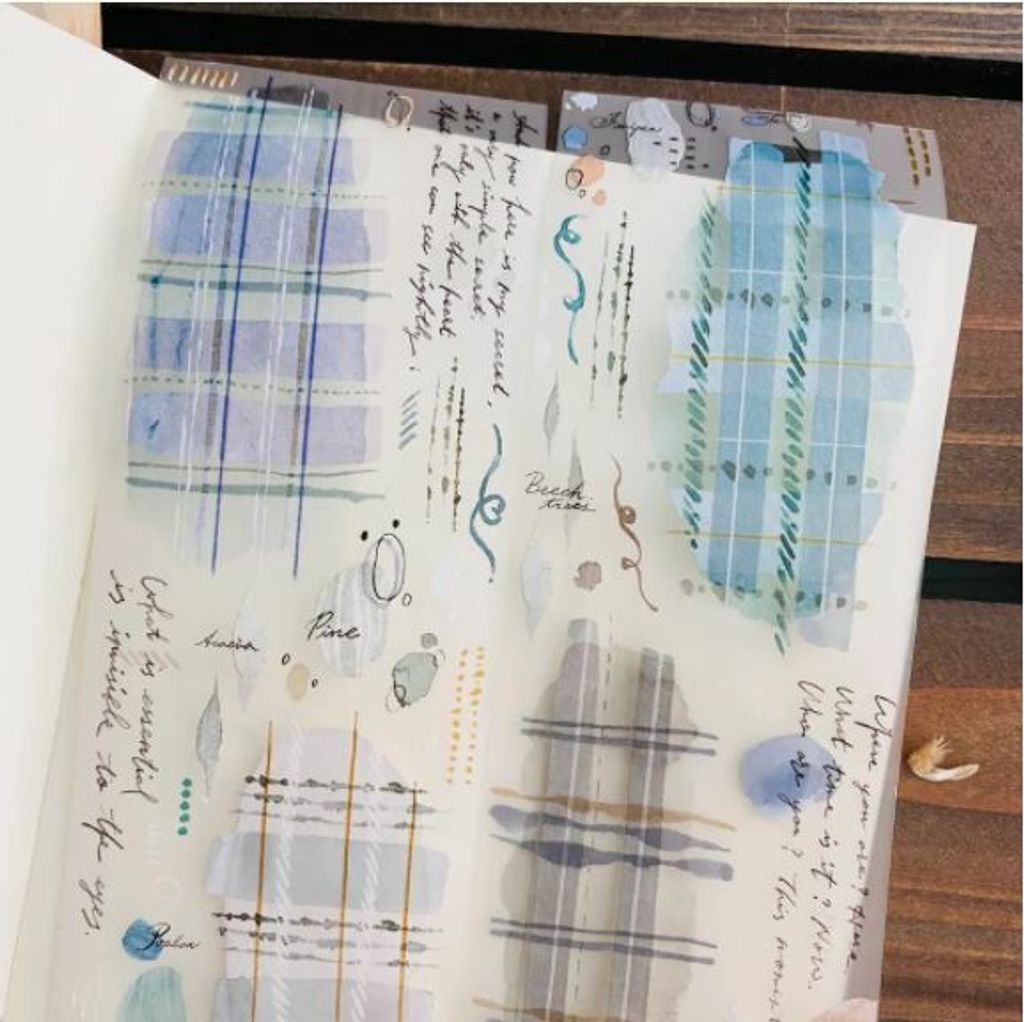 And now here is my secret,
a very simple secret.
It's only with the heart
that one can see rightly;
Beech
trees
Pine
Acacia
What is essential
is invisible to the eyes.
Poplar
Where you are? Here.
What time is it? Now.
Who are you? This moment